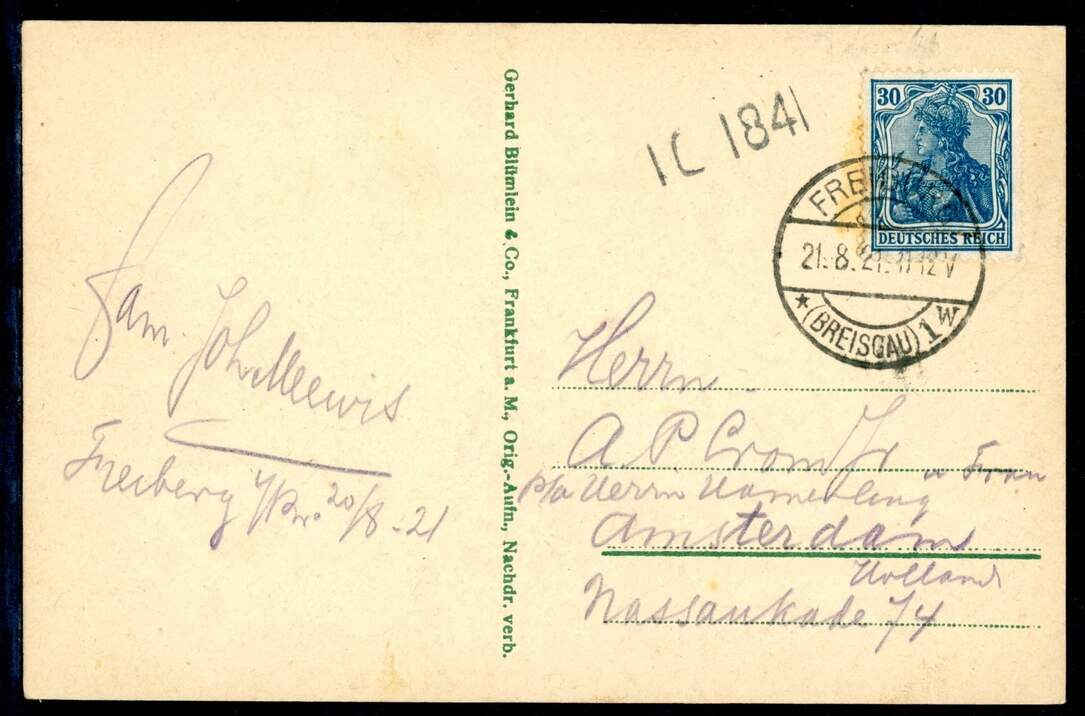 Gerhard Blümlein & Co., Frankfurt a. M., Orig.-Aufn., Nachdr. verb.
1C 1841
30 30
DEUTSCHES REICH
FREIBURG
21.8.21.11-12 V
★ (BREISGAU) 1 W
Fam. Joh. Meewis
Freiberg 20/8-21
Herrn
A. P. Crom Jr u Frau
p/a Herrn
Amsterdam
Holland
Nassaukade 74